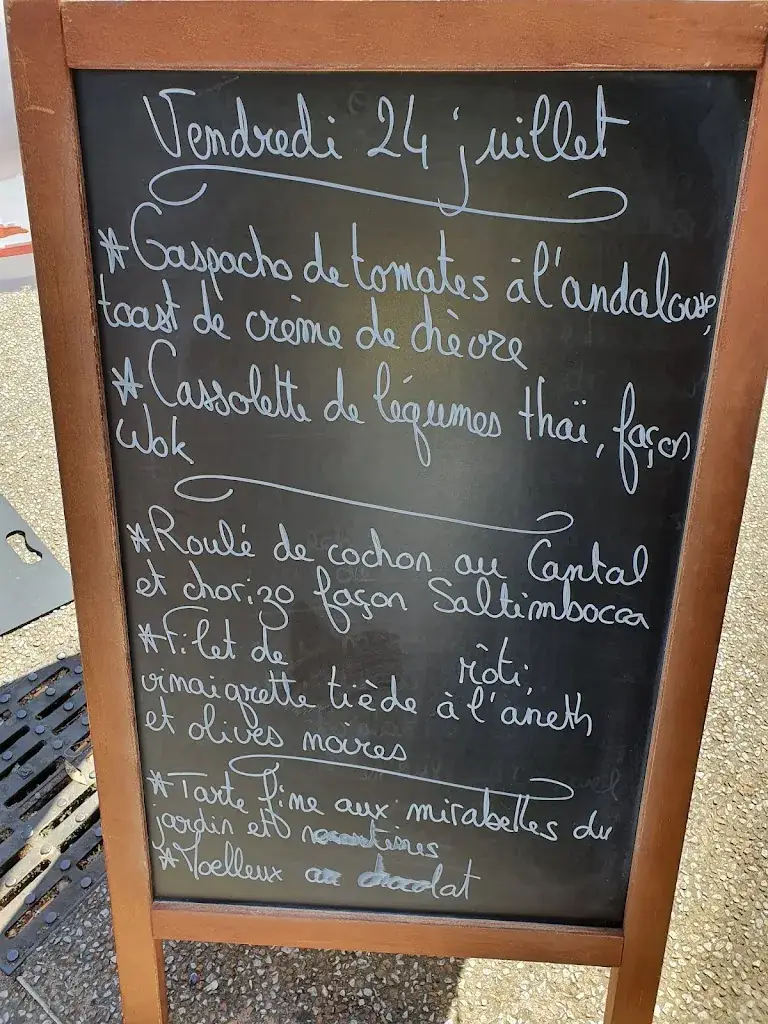 Vendredi 24 juillet
* Gaspacho de tomates à l'andalouse,
toast de crème de chèvre
* Cassolette de légumes thaï, façon
wok
* Roulé de cochon au Cantal
et chorizo façon Saltimbocca
* Filet de rôti,
vinaigrette tiède à l'aneth
et olives noires
* Tarte fine aux mirabelles du
jardin et
* Moelleux au chocolat